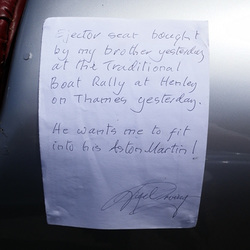 Ejector seat bought
by my brother yesterday
at the Traditional
Boat Rally at Henley
on Thames yesterday.
He wants me to fit
into his Aston Martin!